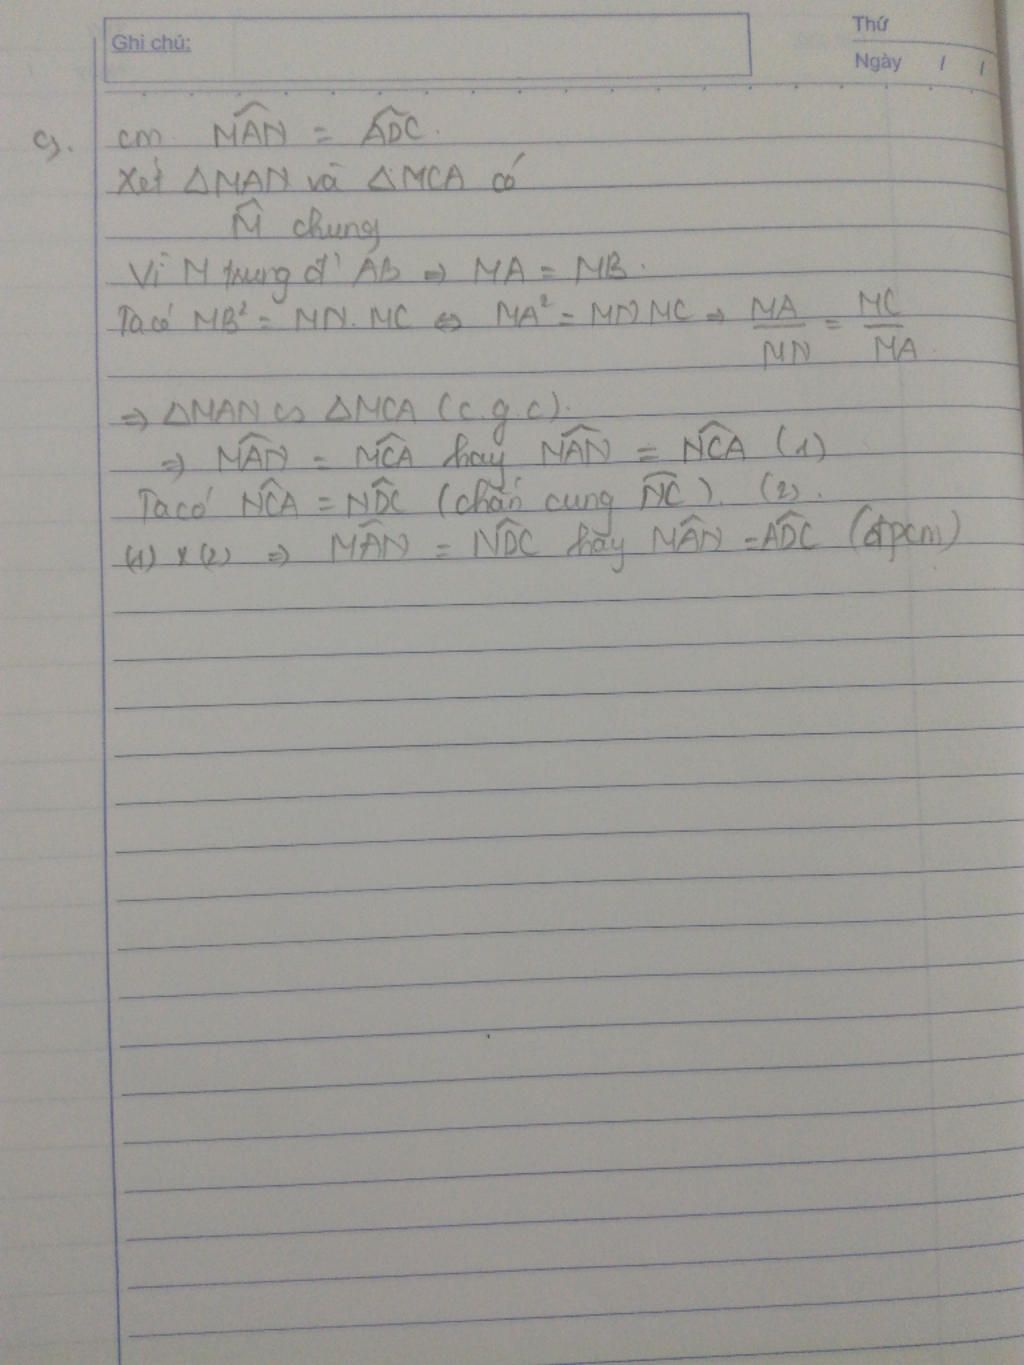 Ghi chú:
Thứ
Ngày / /
c). cm. MÂN = ADĈ.
Xét △MAN và △MCA có
M̂ chung
Vì M trung đ' AB ⇒ MA = MB.
Ta có MB² = MN. MC ⇔ MA² = MN MC ⇒ MA/MN = MC/MA
⇒ △MAN ∽ △MCA (c.g.c).
⇒ \widehat{MAN} = \widehat{MCA} hay \widehat{NAN} = \widehat{NCA} (1)
Ta có \widehat{NCA} = \widehat{NDC} (chắn cung \widehat{NC}). (2).
(1) x (2) ⇒ \widehat{MAN} = \widehat{NDC} hay \widehat{MAN} = \widehat{ADC} (đpcm)